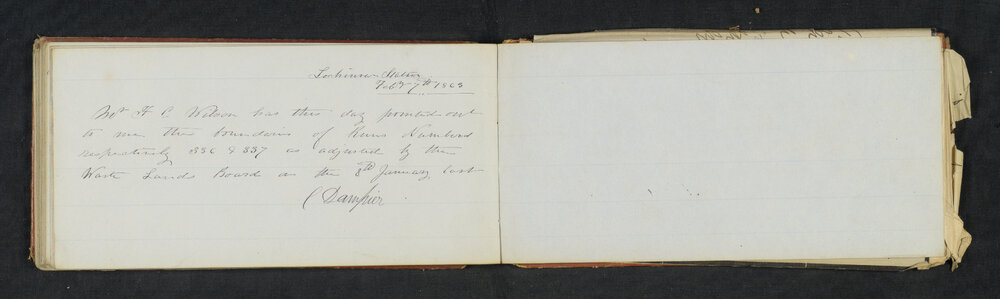 Lochinvar Station
Feby 7th 1868
Mr F C Wilson has this day pointed out
to me the boundaries of Runs Numbered
respectively 336 & 337 as adjusted by the
Waste Lands Board on the 8th January last
C Dampier